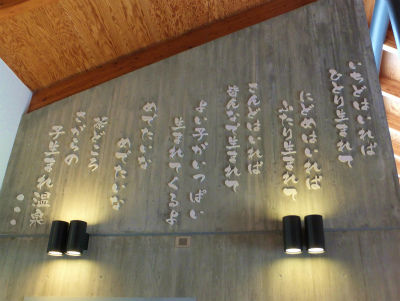 いちどはいれば
ひとり生まれて
にどめはいれば
ふたり生まれて
さんどはいれば
みんなで生まれて
よい子がいっぱい
生まれてくるよ
めでたいな
めでたいな
さがらの
子生まれ温泉